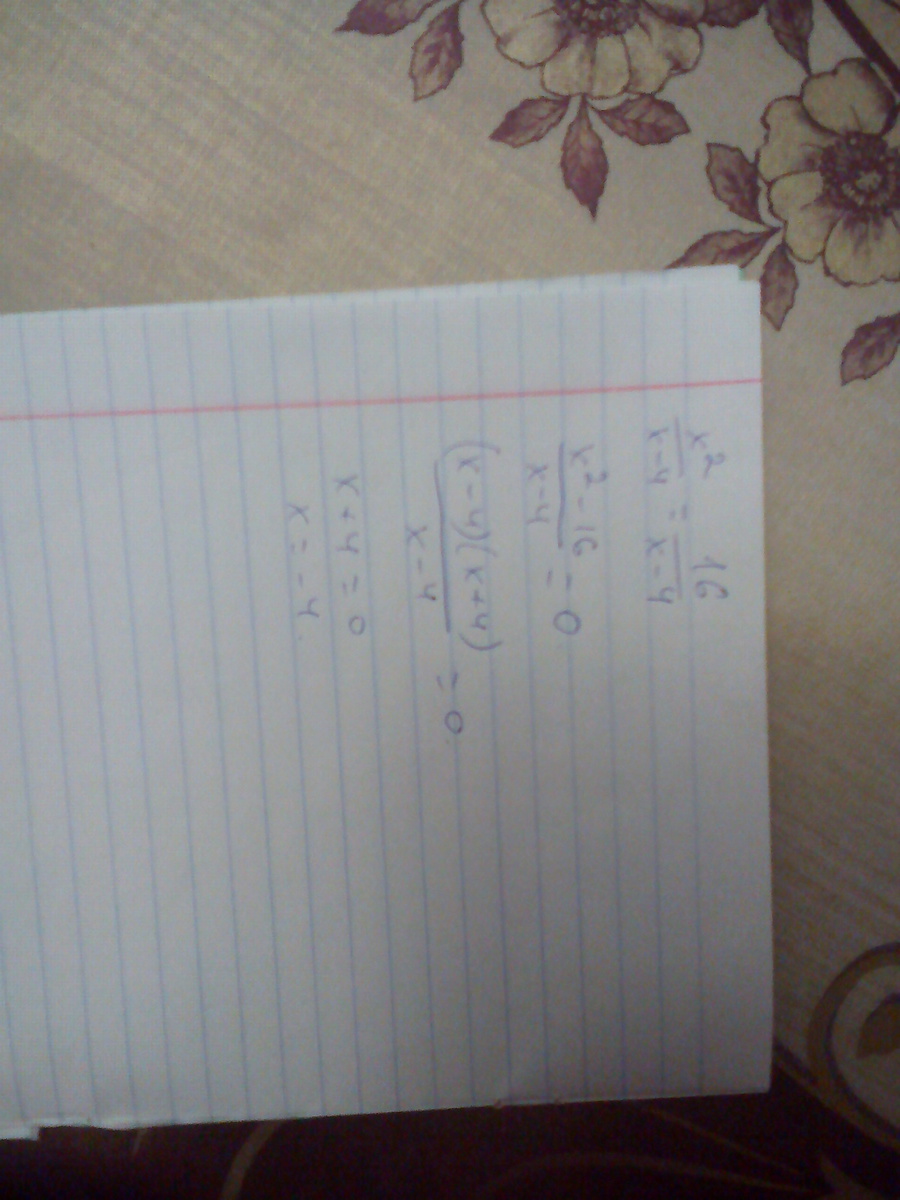 x²/(x-4) = 16/(x-4)
(x²-16)/(x-4) = 0
(x-4)(x+4)/(x-4) = 0
x+4=0
x=-4.